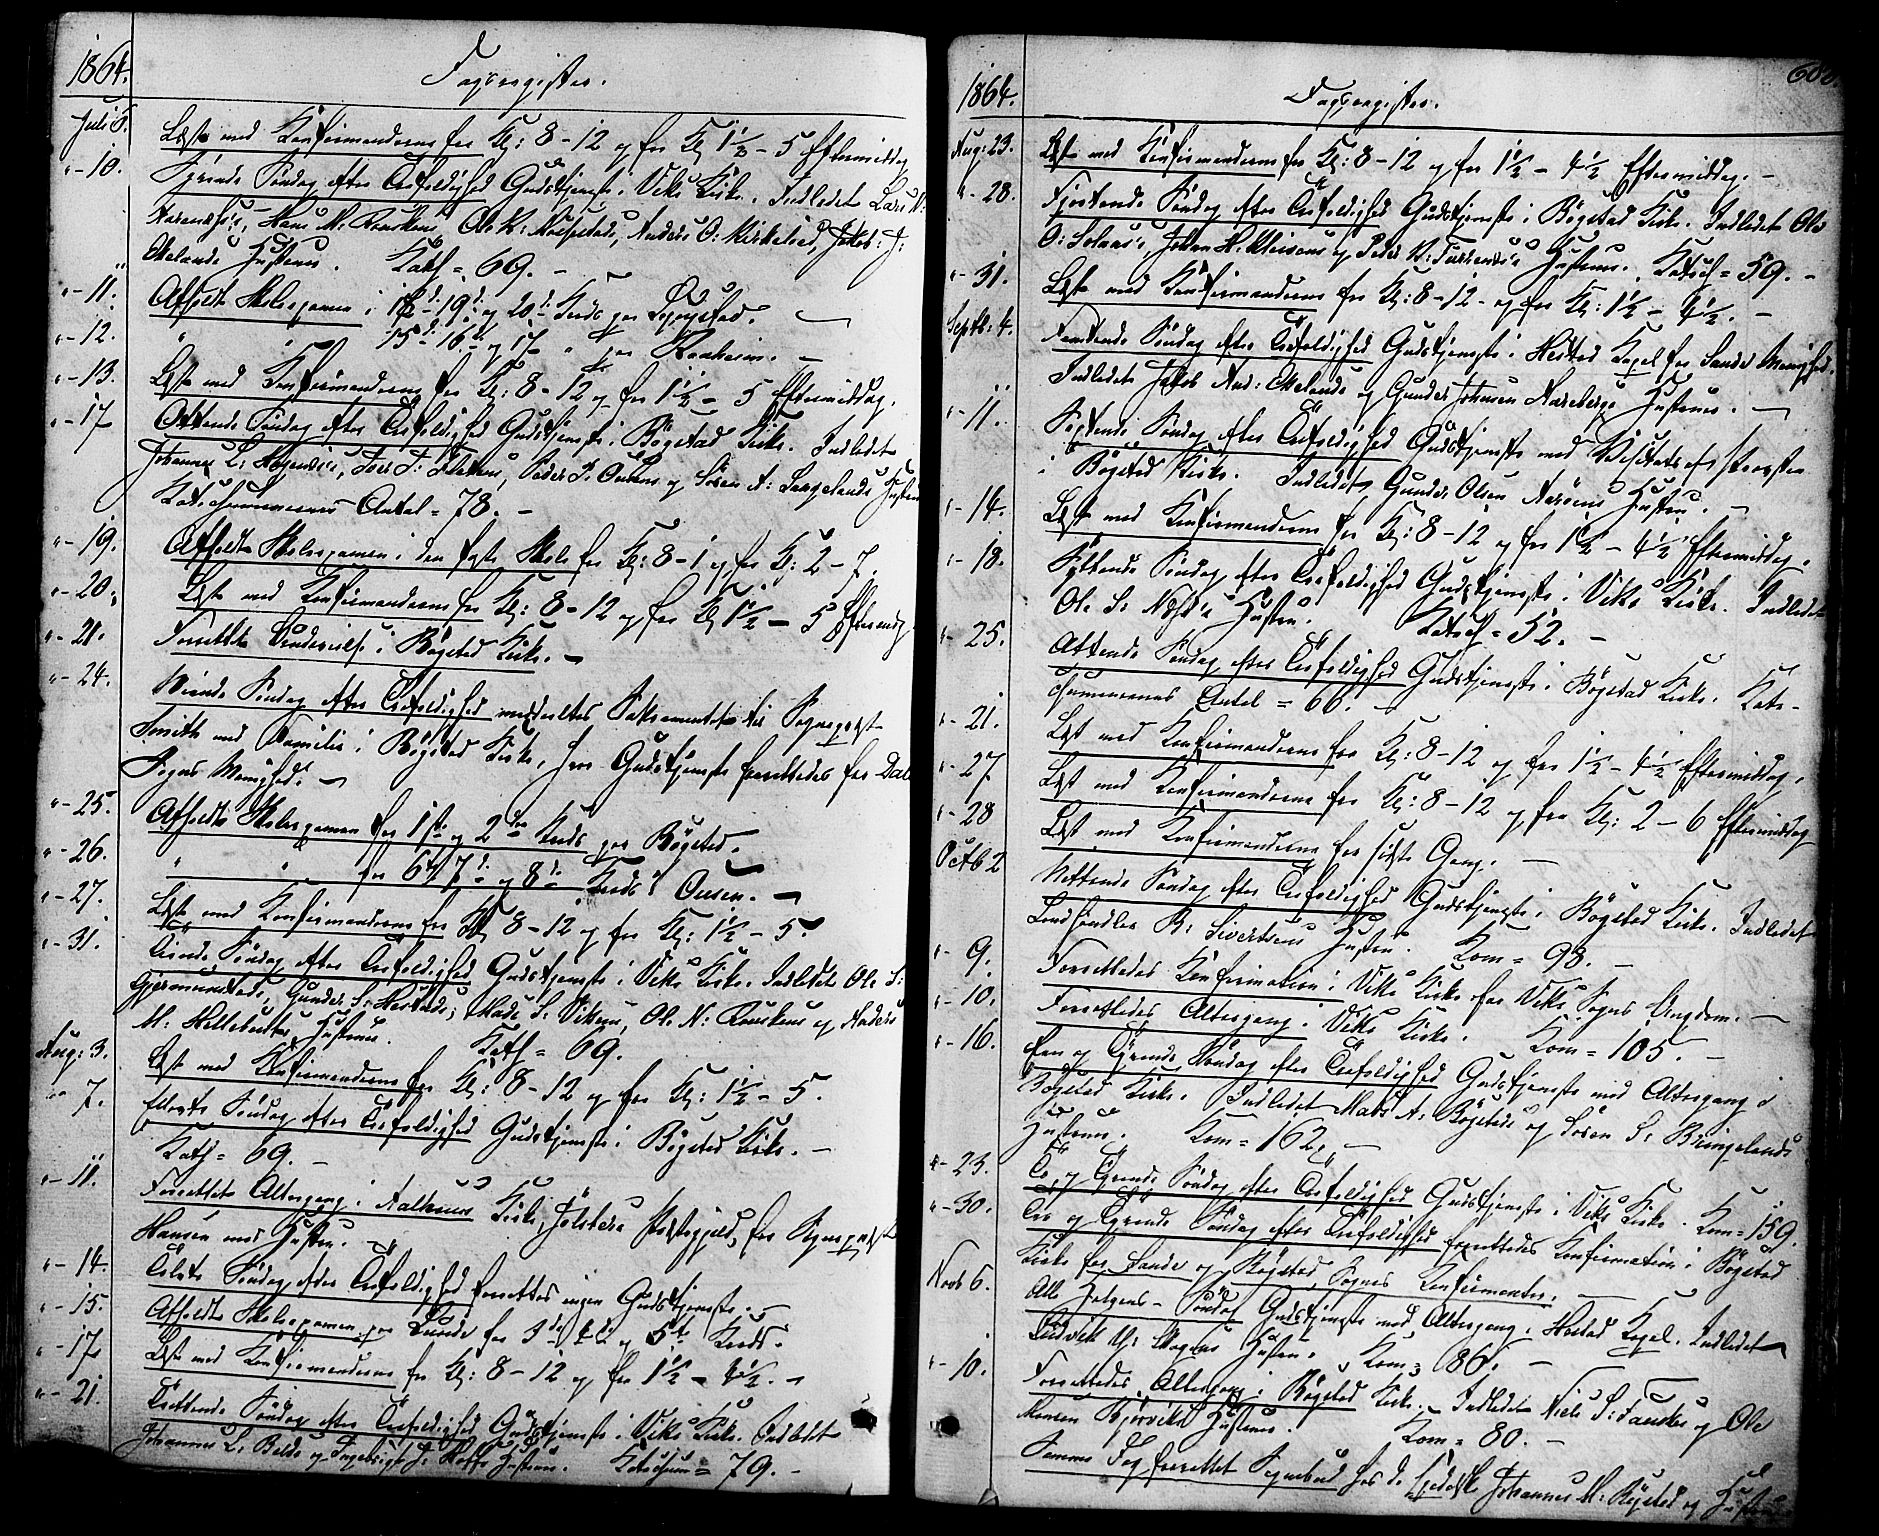 1864.
Dagsregister.
Juli 6. Læst med Konfirmanderne fra Kl: 8-12 og fra Kl 1½-5 Eftermiddag
"-10. Syvende Søndag efter Trefoldighed Gudstjeneste i Viks Kirke. Indledet Lars
Hans M: Ole N: Anders O: Kirkelied, Jakob J:
Mælands Hustruer. Kath = 69. -
"-11. Afholdt Skoleexamen i 18d 19d og 20d Kreds paa
"-12. " " 15d 16d og 17 " paa
"-13. Læst med Konfirmanderne fra Kl: 8-12 og fra 1½-5 Eftermiddag.
"-17 Ottende Søndag efter Trefoldighed Gudstjeneste i Bygstad Kirke. Indledet
Johannes L: Peder P. og Søren A: Langelands Hustruer
Katechumenernes Antal = 78. -
"-19. Afholdt Skoleexamen i den faste Skole fra Kl: 8-1 og fra Kl: 2-7.
"-20. Læst med Konfirmanderne fra Kl: 8-12 og fra Kl 1½-5 Eftermidg
"-21. Forrettet i Bygstad Kirke. -
"-24. Niende Søndag efter Trefoldighed meddeltes Sakramentet til Sognepræst
Smith med Familie i Bygstad Kirke, hvor Gudstjeneste forrettedes for Dale
Sogns Menighed. -
"-25. Afholdt Skoleexamen for 1ste og 2den Kreds paa Bygstad.
"-26. " " for 6te 7de og 8de Kreds i Ousen. -
"-27. Læst med Konfirmanderne fra Kl 8-12 og fra Kl: 1½-5.
"-31. Tiende Søndag efter Trefoldighed Gudstjeneste i Viks Kirke. Indledet Ole S:
Gjermundstads, Gunder S: Hestads, Mads S. Ole N: og Anders
M: Hustruer. Kath = 69.
Aug: 3. Læst med Konfirmanderne fra Kl: 8-12 og fra Kl: 1½-5.
"-7. Ellevte Søndag efter Trefoldighed Gudstjeneste i Bygstad Kirke. -
Kath = 69. -
"-11. Forrettet Altergang i Aalhuus Kirke, Jølsters Præstegjeld, for Sognepræst
Hansen med Hustru. -
"-14. Tolvte Søndag efter Trefoldighed forrettes ingen Gudstjeneste. -
"-15. Afholdt Skoleexamen paa Lunde for 3de, 4de og 5te Kreds.
"-17 Læst med Konfirmanderne fra Kl: 8-12 og fra 1½-4½. -
"-21. Trettende Søndag efter Trefoldighed Gudstjeneste i Viks Kirke. Indledet
Johannes L: og Ingebrigt J: Hustruer. Katechum = 79. -
1864.
Dagsregister.
608
Aug: 23. Læst med Konfirmanderne fra Kl: 8-12 og fra 1½-4½ Eftermiddag. -
"-28. Fjortende Søndag efter Trefoldighed Gudstjeneste i Bygstad Kirke. Indledet Ole
O: Johan H. og Peder Hustruer. Katech = 59. -
"-31. Læst med Konfirmanderne fra Kl: 8-12 og fra Kl: 1½-4½. -
Septb: 4. Femtende Søndag efter Trefoldighed Gudstjeneste i Hestad Kapel for Sande Menighed.
Indledet Jakob And: Mælands og Gunder Johnsen Hustruer. -
"-11. Sextende Søndag efter Trefoldighed Gudstjeneste med Visitats af Provsten
i Bygstad Kirke. Indledet Gunder Olsen Hustru. -
"-14. Læst med Konfirmanderne fra Kl: 8-12 og fra 1½-4½ Eftermiddag.
"-18. Syttende Søndag efter Trefoldighed Gudstjeneste i Viks Kirke. Indledet
Ole S: Hustru. Katech = 52. -
"-25. Attende Søndag efter Trefoldighed Gudstjeneste i Bygstad Kirke. Kate-
chumenernes Antal = 66. -
"-21. Læst med Konfirmanderne fra Kl: 8-12 og fra 1½-4½ Eftermiddag.
"-27 Læst med Konfirmanderne fra Kl: 8-12 og fra Kl: 2-6 Eftermiddag
"-28 Læst med Konfirmanderne for sidste Gang. -
Octb 2 Nittende Søndag efter Trefoldighed Gudstjeneste i Bygstad Kirke. Indledet
Landhandler R: Sivertsens Hustru. Kom = 98. -
"-9. Forrettedes Konfirmation i Viks Kirke for Viks Sogns Ungdom. -
"-10. Forrettedes Altergang i Viks Kirke. Kom = 105. -
"-16. Een og Tyvende Søndag efter Trefoldighed Gudstjeneste med Altergang i
Bygstad Kirke. Indledet Mads A: Bygstads og Søren S: Bringelands
Hustruer. Kom = 162. -
"-23. To og Tyvende Søndag efter Trefoldighed Gudstjeneste i Viks Kirke. Kom = 159.
"-30. Tre og Tyvende Søndag efter Trefoldighed forrettedes Konfirmation i Bygstad
Kirke for Sande og Bygstad Sognes Konfirmanter. -
Novb 6. Alle Helgens-Søndag Gudstjeneste med Altergang i Hestad Kapel. Indledet
Hustru. Kom = 86. -
"-10. Forrettedes Altergang i Bygstad Kirke. Indledet Niels S: og Ole
Monsen Hustruer. Kom = 80. -
Samme Dag forrettet Sognebud hos de Johannes M: Bygstad og Hustru